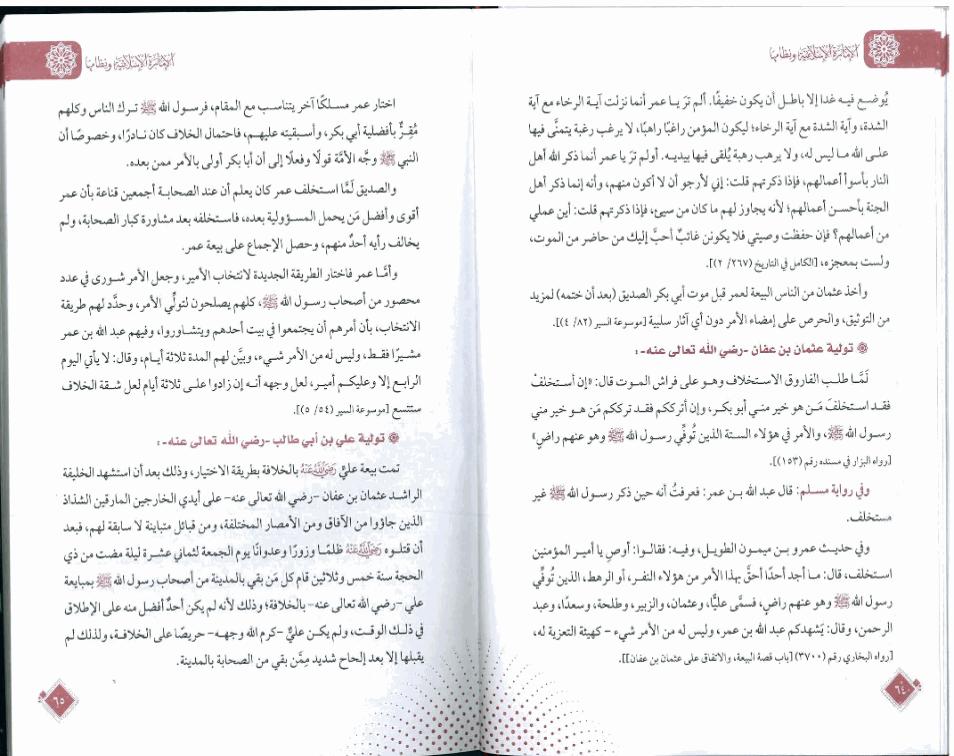 الإمارة الإسلامية ونظامها
يُوضع فيه غدا إلا باطل أن يكون خفيفًا. ألم ترَ يا عمر أنما نزلت آية الرخاء مع آية
الشدة، وآية الشدة مع آية الرخاء؛ ليكون المؤمن راغبًا راهبًا، لا يرغب رغبة يتمنَّى فيها
على الله ما ليس له، ولا يرهب رهبة يُلقى فيها بيديه. أولم ترَ يا عمر أنما ذكر الله أهل
النار بأسوأ أعمالهم، فإذا ذكرتهم قلت: إني لأرجو أن لا أكون منهم، وأنه إنما ذكر أهل
الجنة بأحسن أعمالهم؛ لأنه يجاوز لهم ما كان من سيئ، فإذا ذكرتهم قلت: أين عملي
من أعمالهم؟ فإن حفظت وصيتي فلا يكونن غائبٌ أحبَّ إليك من حاضر من الموت،
ولست بمعجزه، [الكامل في التاريخ (٢٦٧/ ٢)].
وأخذ عثمان من الناس البيعة لعمر قبل موت أبي بكر الصديق (بعد أن ختمه) لمزيد
من التوثيق، والحرص على إمضاء الأمر دون أي آثار سلبية [موسوعة السير (٨٢/ ٤)].
تولية عثمان بن عفان -رضي الله تعالى عنه-:
لَمَّا طلب الفاروق الاستخلاف وهو على فراش الموت قال: «إن أستخلفْ
فقد استخلفَ مَن هو خير مني أبو بكر، وإن أترككم فقد ترككم مَن هو خير مني
رسول الله ﷺ، والأمر في هؤلاء الستة الذين تُوفِّي رسول الله ﷺ وهو عنهم راضٍ»
[رواه البزار في مسنده رقم (١٥٣)].
وفي رواية مسلم: قال عبد الله بن عمر: فعرفتُ أنه حين ذكر رسول الله ﷺ غير
مستخلف.
وفي حديث عمرو بن ميمون الطويل، وفيه: فقالوا: أوصِ يا أمير المؤمنين
استخلف، قال: ما أجد أحدًا أحقَّ بهذا الأمر من هؤلاء النفر، أو الرهط، الذين تُوفِّي
رسول الله ﷺ وهو عنهم راضٍ، فسمَّى عليًّا، وعثمان، والزبير، وطلحة، وسعدًا، وعبد
الرحمن، وقال: يَشهدكم عبد الله بن عمر، وليس له من الأمر شيء - كهيئة التعزية له،
[رواه البخاري رقم (٣٧٠٠) [باب قصة البيعة، والاتفاق على عثمان بن عفان]].
٦٤
الإمارة الإسلامية ونظامها
اختار عمر مسلكًا آخر يتناسب مع المقام، فرسول الله ﷺ ترك الناس وكلهم
مُقِرٌّ بأفضلية أبي بكر، وأسبقيته عليهم، فاحتمال الخلاف كان نادرًا، وخصوصًا أن
النبي ﷺ وجَّه الأمَّة قولًا وفعلًا إلى أن أبا بكر أولى بالأمر ممن بعده.
والصديق لَمَّا استخلف عمر كان يعلم أن عند الصحابة أجمعين قناعة بأن عمر
أقوى وأفضل مَن يحمل المسؤولية بعده، فاستخلفه بعد مشاورة كبار الصحابة، ولم
يخالف رأيه أحدٌ منهم، وحصل الإجماع على بيعة عمر.
وأمَّا عمر فاختار الطريقة الجديدة لانتخاب الأمير، وجعل الأمر شورى في عدد
محصور من أصحاب رسول الله ﷺ، كلهم يصلحون لتولِّي الأمر، وحدَّد لهم طريقة
الانتخاب، بأن أمرهم أن يجتمعوا في بيت أحدهم ويتشاوروا، وفيهم عبد الله بن عمر
مشيرًا فقط، وليس له من الأمر شيء، وبيَّن لهم المدة ثلاثة أيام، وقال: لا يأتي اليوم
الرابع إلا وعليكم أمير، لعل وجهه أنه إن زادوا على ثلاثة أيام لعل شقة الخلاف
ستتسع [موسوعة السير (٥٤/ ٥)].
تولية علي بن أبي طالب -رضي الله تعالى عنه-:
تمت بيعة عليٍّ رَضِيَ اللهُ عَنْهُ بالخلافة بطريقة الاختيار، وذلك بعد أن استشهد الخليفة
الراشد عثمان بن عفان -رضي الله تعالى عنه- على أيدي الخارجين المارقين الشذاذ
الذين جاؤوا من الآفاق ومن الأمصار المختلفة، ومن قبائل متباينة لا سابقة لهم، فبعد
أن قتلوه رَضِيَ اللهُ عَنْهُ ظلمًا وزورًا وعدوانًا يوم الجمعة لثماني عشرة ليلة مضت من ذي
الحجة سنة خمس وثلاثين قام كل مَن بقي بالمدينة من أصحاب رسول الله ﷺ بمبايعة
علي -رضي الله تعالى عنه- بالخلافة؛ وذلك لأنه لم يكن أحدٌ أفضل منه على الإطلاق
في ذلك الوقت، ولم يكن عليٌّ -كرم الله وجهه- حريصًا على الخلافة، ولذلك لم
يقبلها إلا بعد إلحاح شديد مِمَّن بقي من الصحابة بالمدينة.
٦٥